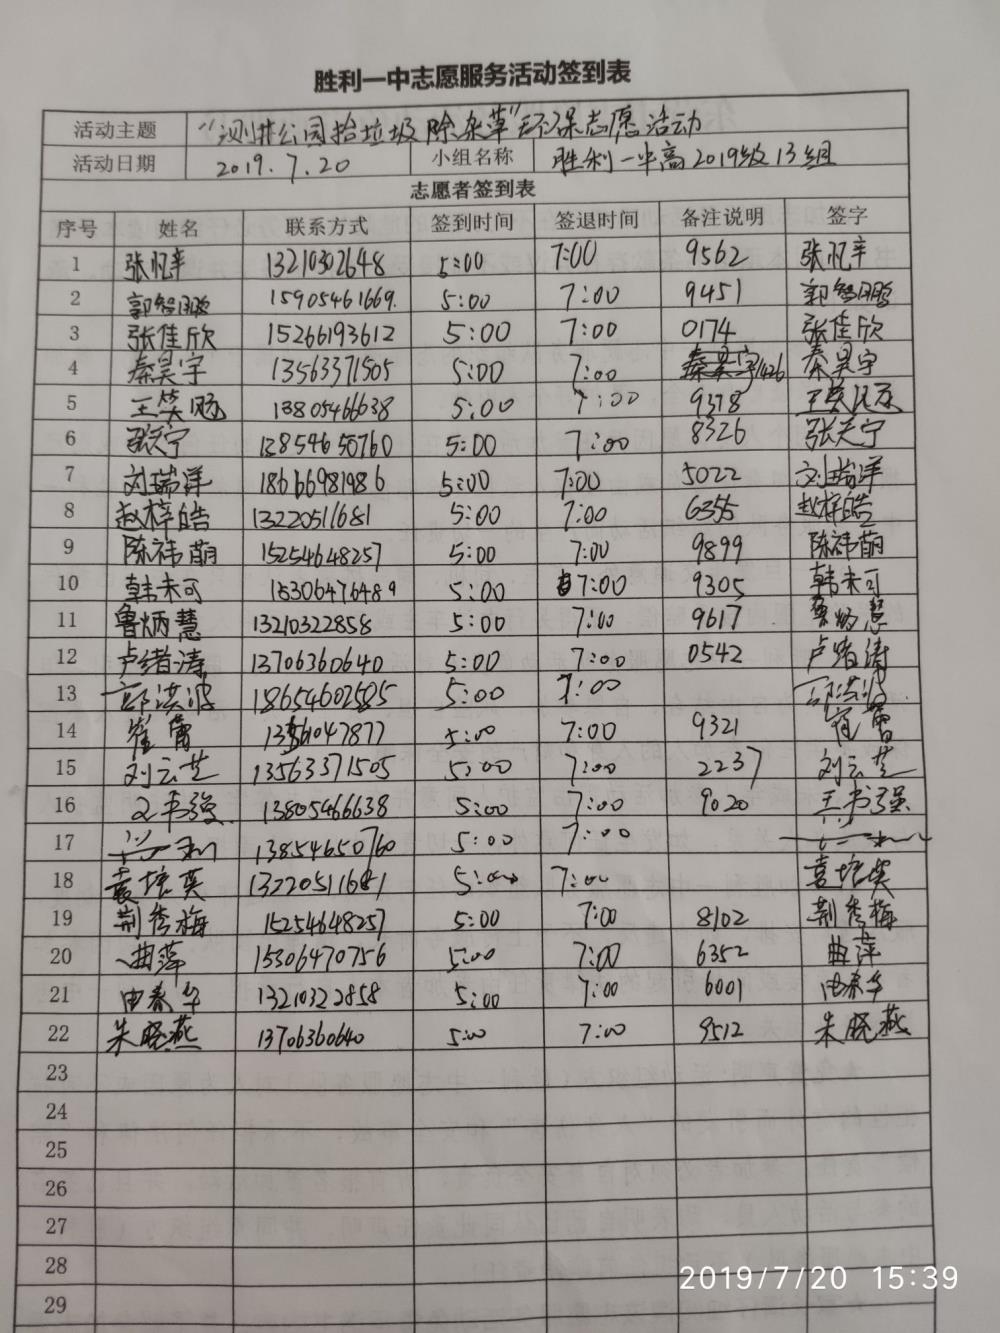 胜利一中志愿服务活动签到表
活动主题 "测井公园拾垃圾 除杂草"环保志愿活动
活动日期 2019.7.20 小组名称 胜利一中高2019级13组
志愿者签到表
序号 姓名 联系方式 签到时间 签退时间 备注说明 签字
1 张忆辛 13210302648 5:00 7:00 9562 张忆辛
2 郭智鹏 15905461669. 5:00 7:00 9451 郭智鹏
3 张佳欣 15266193612 5:00 7:00 0174 张佳欣
4 秦昊宇 13563371505 5:00 7:00 1426 秦昊宇
5 13805466638 5:00 7:00 9378
6 张天宁 13854650760 5:00 7:00 8326 张天宁
7 刘瑞洋 18666981986 5:00 7:00 5022 刘瑞洋
8 赵梓皓 13220511681 5:00 7:00 6355 赵梓皓
9 陈祎萌 15254648257 5:00 7:00 9899 陈祎萌
10 韩未可 15306476489 5:00 7:00 9305 韩未可
11 鲁炳慧 13210322858 5:00 7:00 9617 鲁炳慧
12 卢绪涛 13706360640 5:00 7:00 0542 卢绪涛
13 郭洪波 18654602585 5:00 7:00 郭洪波
14 崔雷 13561047877 5:00 7:00 9321 崔雷
15 刘云芝 13563371505 5:00 7:00 2237 刘云芝
16 王书强 13805466638 5:00 7:00 9020 王书强
17 13854650760 5:00 7:00
18 袁培英 13220511681 5:00 7:00 袁培英
19 荆秀梅 15254648257 5:00 7:00 8102 荆秀梅
20 曲萍 15306470756 5:00 7:00 6352 曲萍
21 由春华 13210322858 5:00 7:00 6001 由春华
22 朱晓燕 13706360640 5:00 7:00 9512 朱晓燕
23
24
25
26
27
28
29
2019/7/20 15:39